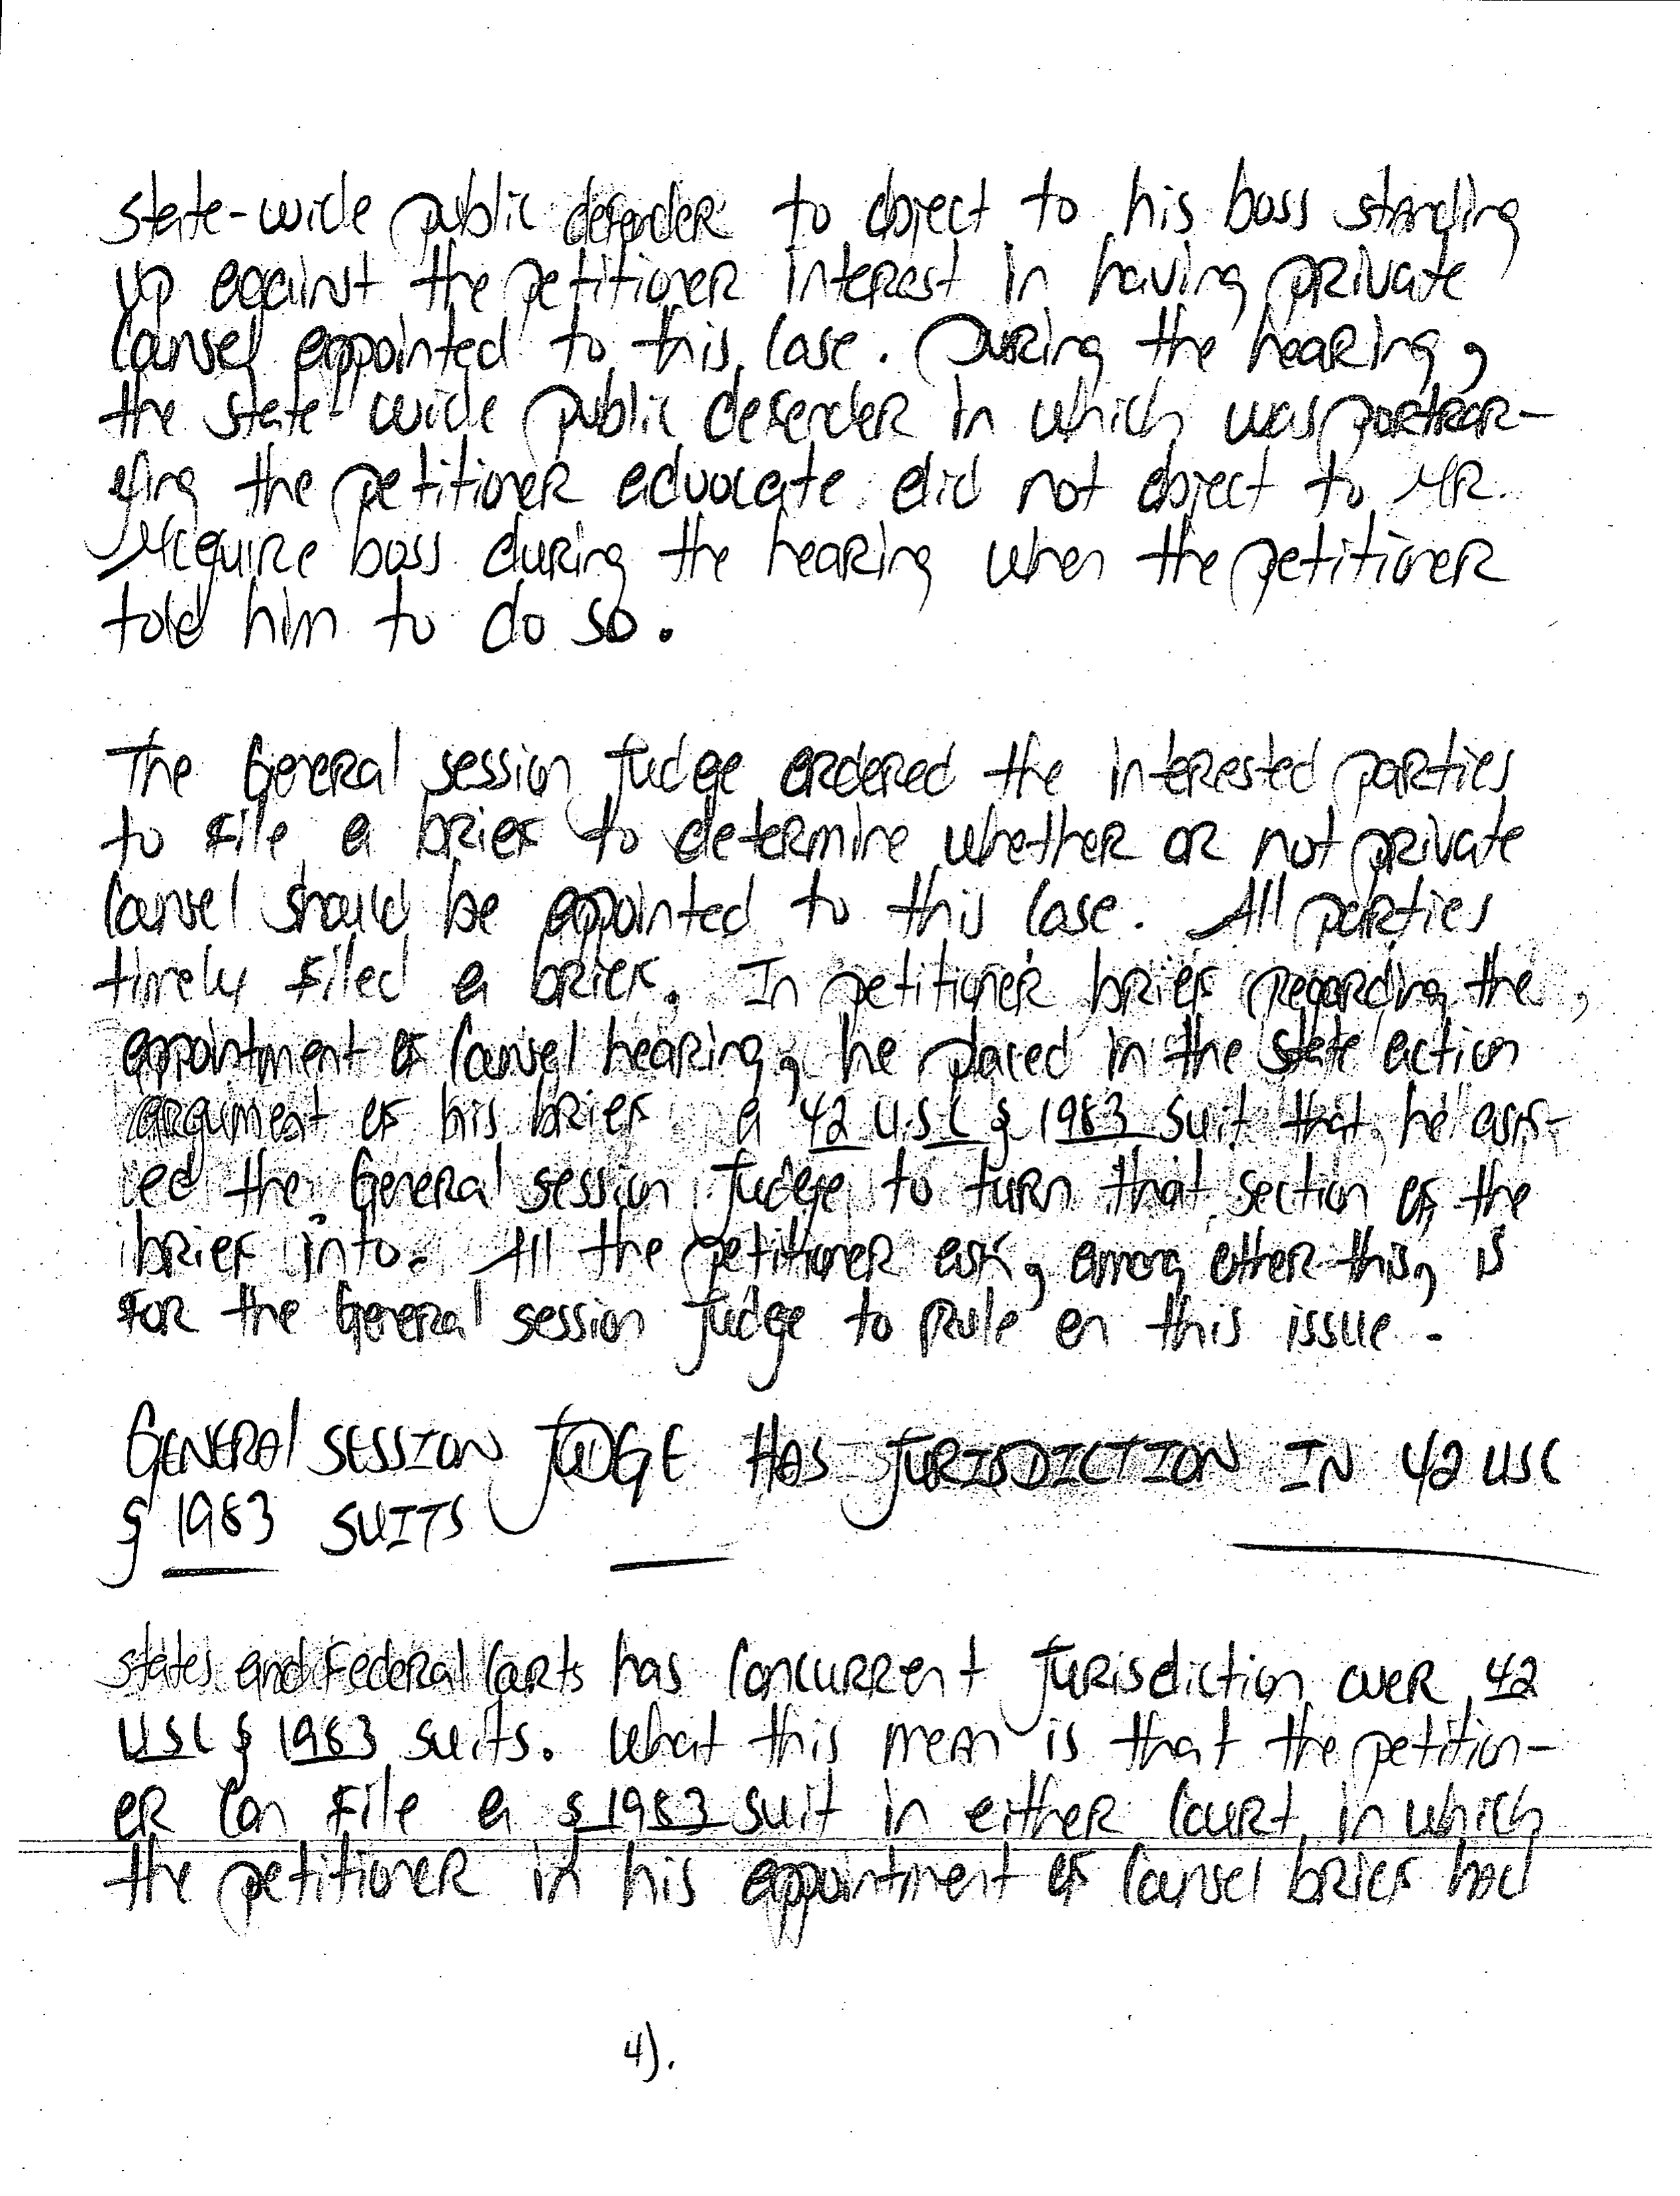 state-wide public defender to object to his boss standing
up against the petitioner interest in having private
counsel appointed to this case. During the hearing,
the state-wide public defender in which was portrar-
ying the petitioner advocate did not object to MR.
Mcquire boss during the hearing when the petitioner
told him to do so.
The General session Judge ordered the interested parties
to file a brief to determine whether or not private
counsel should be appointed to this case. All parties
timely filed a brief. In petitioner brief regarding the,
appointment of counsel hearing, he placed in the state action
argument of his brief a 42 U.S.C § 1983 suit that he ask-
ed the General session Judge to turn that section of the
brief into. All the petitioner ask, among other this, is
for the General session Judge to Rule on this issue.
GENERAL SESSION JUDGE HAS JURISDICTION IN 42 USC
§ 1983 SUITS
states and Federal Corts has concurrent Jurisdiction over 42
USC § 1983 suits. What this mean is that the petition-
er can file a § 1983 suit in either court, in which
the petitioner in his appointment of counsel brief had
4).